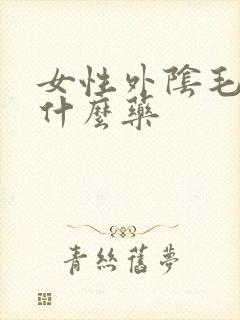 女性外陰毛
什麼藥
青絲舊夢